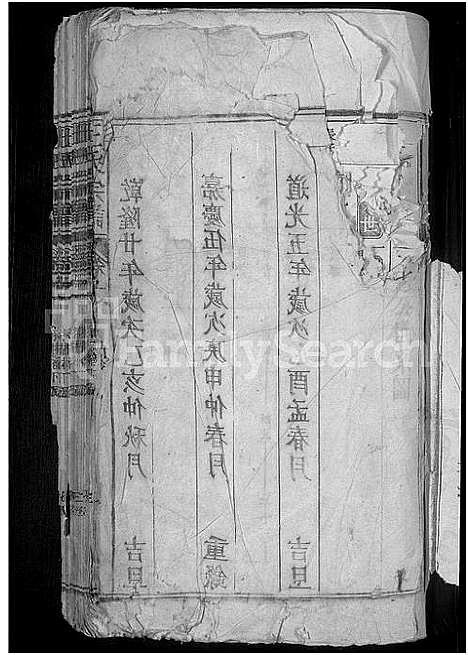 乾隆廿年歲次乙亥仲秋月 吉旦
嘉慶伍年歲次庚申仲春月 重錄
道光五年歲次 酉孟春月 吉旦
氏宗譜
FamilySearch